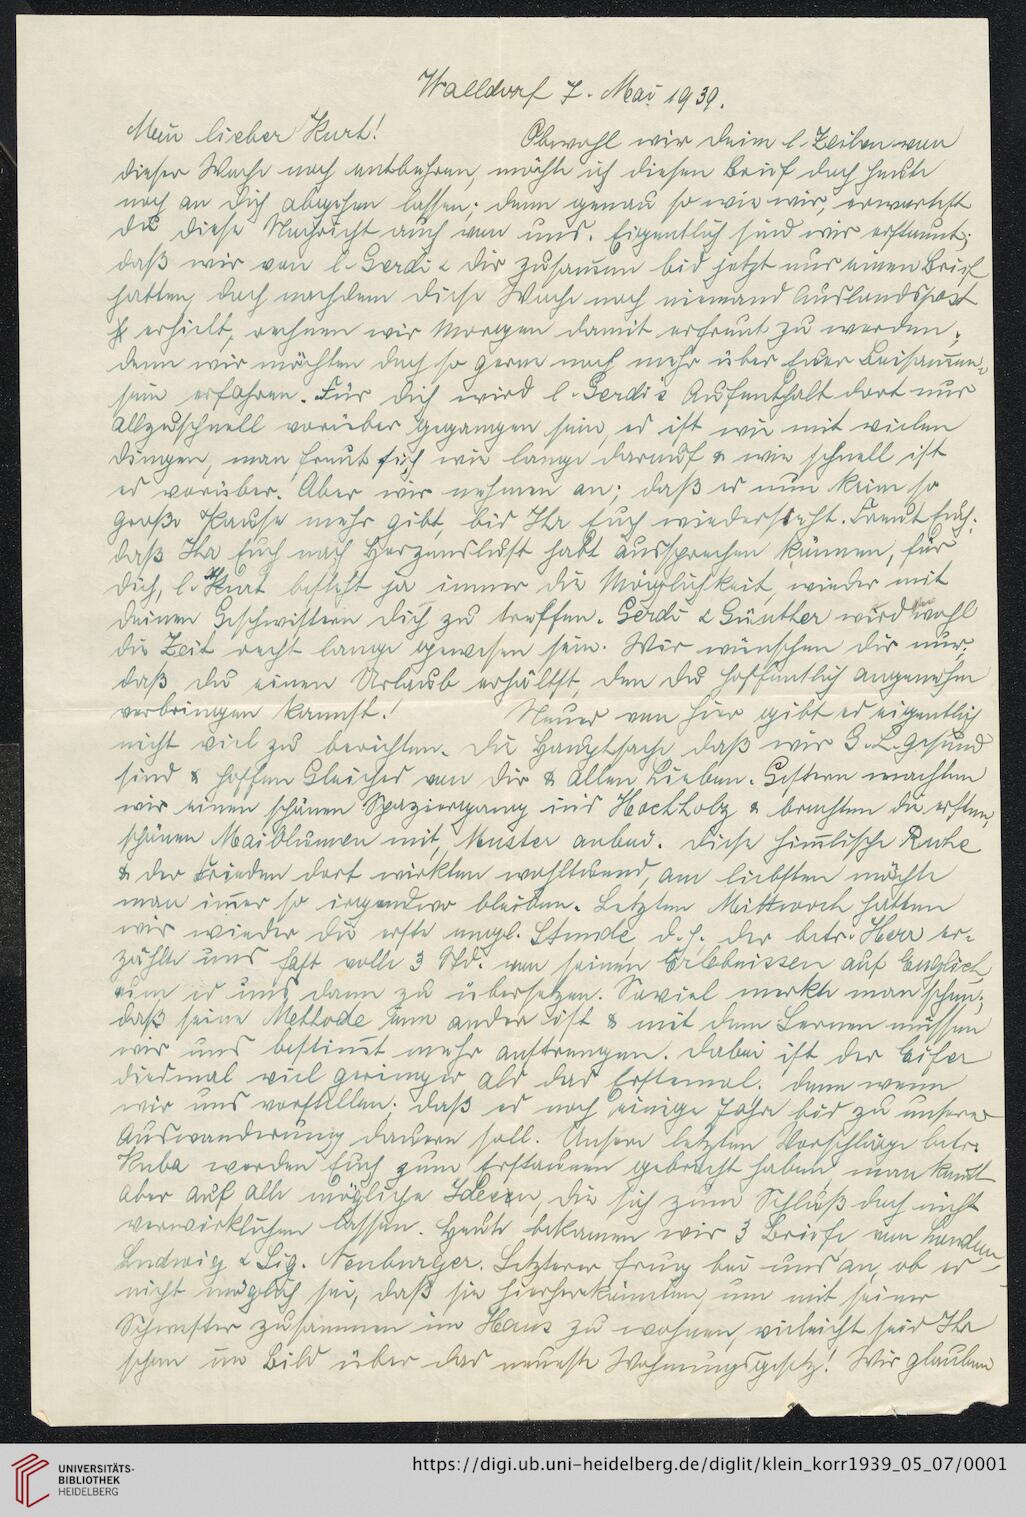 Walldorf 7. Mai 1939.
Mein lieber Kurt! Obwohl wir deine l. Zeilen von
dieser Woche noch entbehren, möchte ich diesen Brief doch heute
noch an Dich abgehen lassen; denn genau so wie wir, erwartest
du diese Nachricht auch von uns. Eigentlich sind wir erstaunt;
daß wir von l. Gerdi & dir zusammen bis jetzt nur einen Brief
hatten, doch nachdem diese Woche noch niemand Auslandspost
erhielt, rechnen wir morgen damit erfreut zu werden,
denn wir möchten doch so gerne noch mehr über Euer Beisammen-
sein erfahren. Für dich wird l. Gerdis Aufenthalt dort nur
allzuschnell vorüber gegangen sein, es ist wie mit vielen
Dingen, man freut sich wie lange darauf & wie schnell ist
es vorüber. Aber wir nehmen an; daß es nun keine so
große Pause mehr gibt, bis Ihr Euch wiederseht. Freut Euch;
daß Ihr Euch nach Herzenslust habt aussprechen können, für
dich, l. Kurt besteht ja immer die Möglichkeit, wieder mit
deinen Geschwistern dich zu treffen. Gerdi & Günther wird wohl
die Zeit recht lange gewesen sein. Wir wünschen dir nur;
daß du einen Urlaub erhältst, den du hoffentlich angenehm
verbringen kannst! Neues von hier gibt es eigentlich
nicht viel zu berichten. Die Hauptsache daß wir G. L. gesund
sind & hoffen Gleiches von dir & allen Lieben. Gestern machten
wir einen schönen Spaziergang in's Hochholz & brachten die ersten,
schönen Maiblumen mit, Muster anbei. Diese himmlische Ruhe
& der Frieden dort wirkten wohltuend, am liebsten möchte
man immer so irgendwo bleiben. Letzten Mittwoch hatten
wir wieder die erste engl. Stunde, d. h. der betr. Herr er-
zählte uns fast volle 3 Std. von seinen Erlebnissen auf Englisch
um es uns dann zu übersetzen. Soviel merkte man schon;
daß seine Methode anders ist & mit dem Lernen müssen
wir uns bestimmt mehr anstrengen. Dabei ist der Eifer
diesmal viel geringer als das Erstemal. Denn wenn
wir uns vorstellen; daß es noch einige Jahre bis zu unserer
Auswanderung dauern soll. Unsere letzten Vorschläge betr.
Kuba werden Euch zum Erstaunen gebracht haben, man kommt
aber auf alle mögliche Ideen, die sich zum Schluß doch nicht
verwirklichen lassen. Heute bekamen wir 3 Briefe von London
Ludwig & Sig. Neuburger. Letzterer frug bei uns an, ob es
nicht möglich sei, daß sie hierherkämen, um mit seiner
Schwester zusammen im Haus zu wohnen, vielleicht seid Ihr
schon im Bild über das neueste Wohnungsgesetz! Wir glauben
UNIVERSITÄTS-
BIBLIOTHEK
HEIDELBERG
https://digi.ub.uni-heidelberg.de/diglit/klein_korr1939_05_07/0001